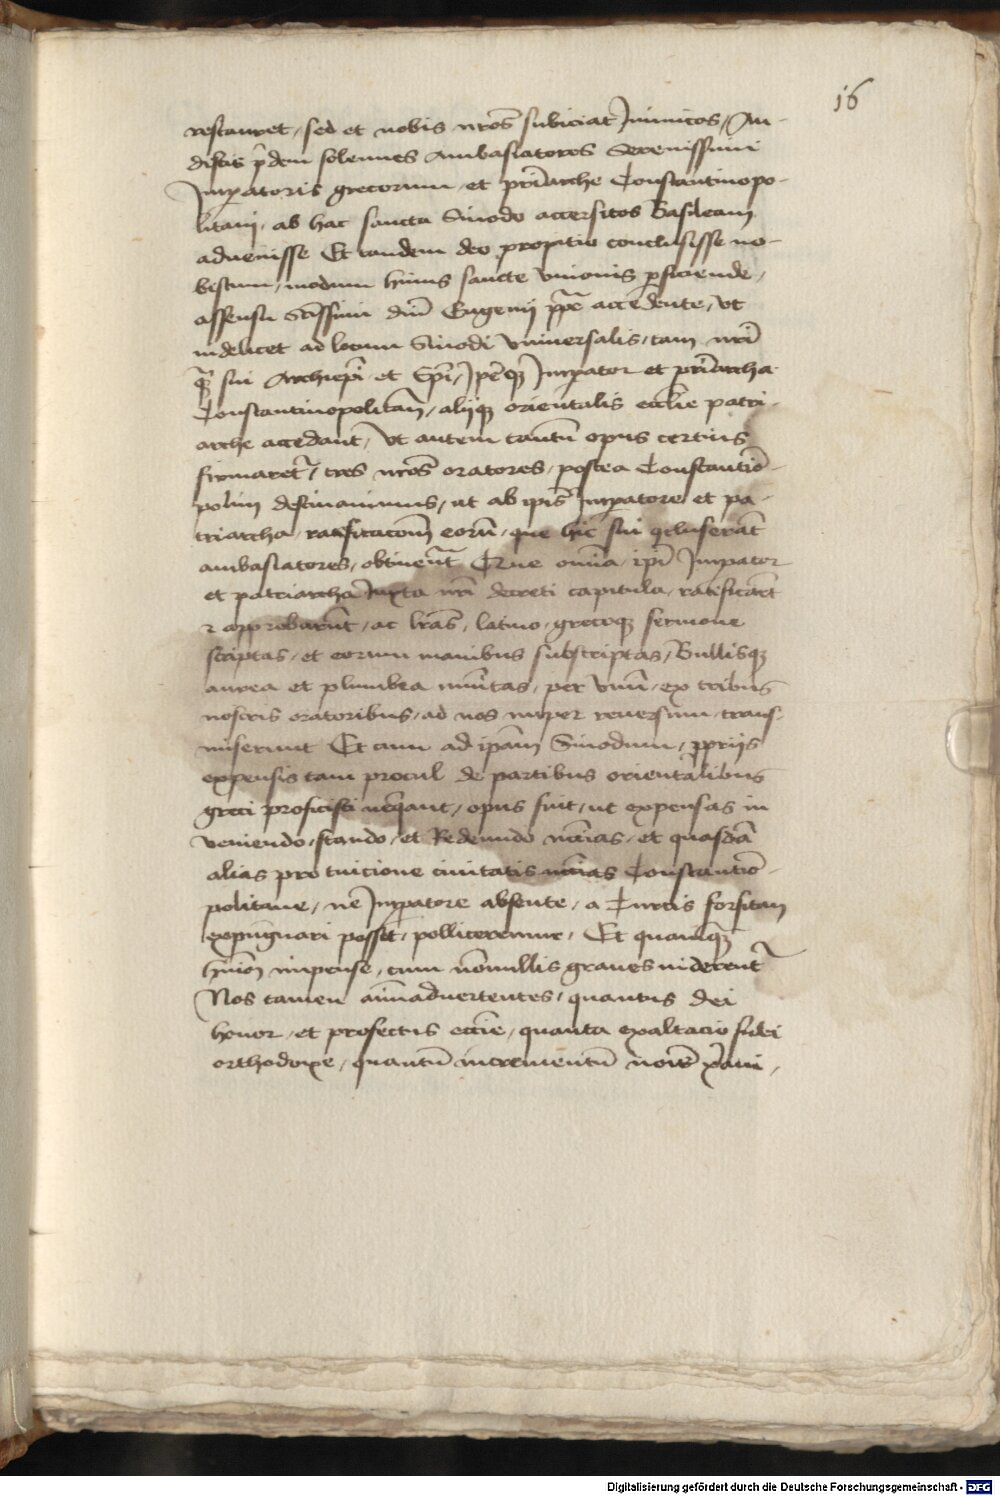 16
restauret, sed et nobis nr̄os subiciat Inimicos, Au-
distis p̄dem solennes Ambasiatores Serenissimi
Imꝑatoris grecorum et pr̄iarche Constantinopo-
litani, ab hac sancta Sinodo accersitos Basileam
aduenisse Et tandem deo propitio conclusisse no-
biscum, modum huius sancte Vnionis ꝑficiende,
assensu sc̄issimi dn̄i Eugenij pp̄e accedente, Vt
videlicet ad locum Sinodi Vniuersalis, tam nr̄i
qͣ̄ sui Archiep̄i et Ep̄i, Ip̄eqꝫ Imꝑator et pr̄iarcha
Constantinopolitan̄, alijqꝫ orientalis ecclīe patri-
arche accedant, Vt autem tantū opus certius
firmaret᷑, tres nr̄os oratores, postea Constantīo-
polim destinauimus, ut ab ip̄is Imꝑatore et pa-
triarcha, ratificacōm eorū, que hic sui ꝯcluserāt
ambasiatores, obtinerēt Que om̄ia ip̄i Imꝑator
et patriarcha Iuxta nr̄i decreti capitula, ratificarūt
⁊ approbarūt, ac lr̄as, latino, grecoqꝫ sermone
scriptas, et eorum manibus subscriptas, Bullisqꝫ
aurea et plumbea mūitas, per Vnū, ex tribus
nostris oratoribus, ad nos nuper reuersum, trans-
miserunt Et cum ad ip̄am Sinodum, ꝓprijs
expensis tam procul de partibus orientalibus
greci proficisci neq̄ant, opus fuit, ut expensas in
veniendo, stando, et Redeundo nc̄cias, et quasdā
alias pro tuicione ciuitatis nc̄cias Constantīo-
politane, ne Imꝑatore absente, a Turcis forsitan
expugnari posset, polliceremur, Et quamqͣ̄
hm̄oi impense, cum nōnullis graues viderent᷑
Nos tamen aīmaduertentes, quantus dei
honor, et profectus ecclīe, quanta exaltacio fidei
orthodoxe, quantū incrementū noīs xp̄iani,
Digitalisierung gefördert durch die Deutsche Forschungsgemeinschaft - DFG